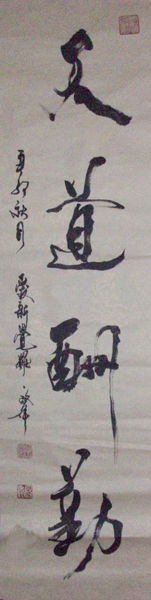 天道酬勤
秋月
愛新覺羅